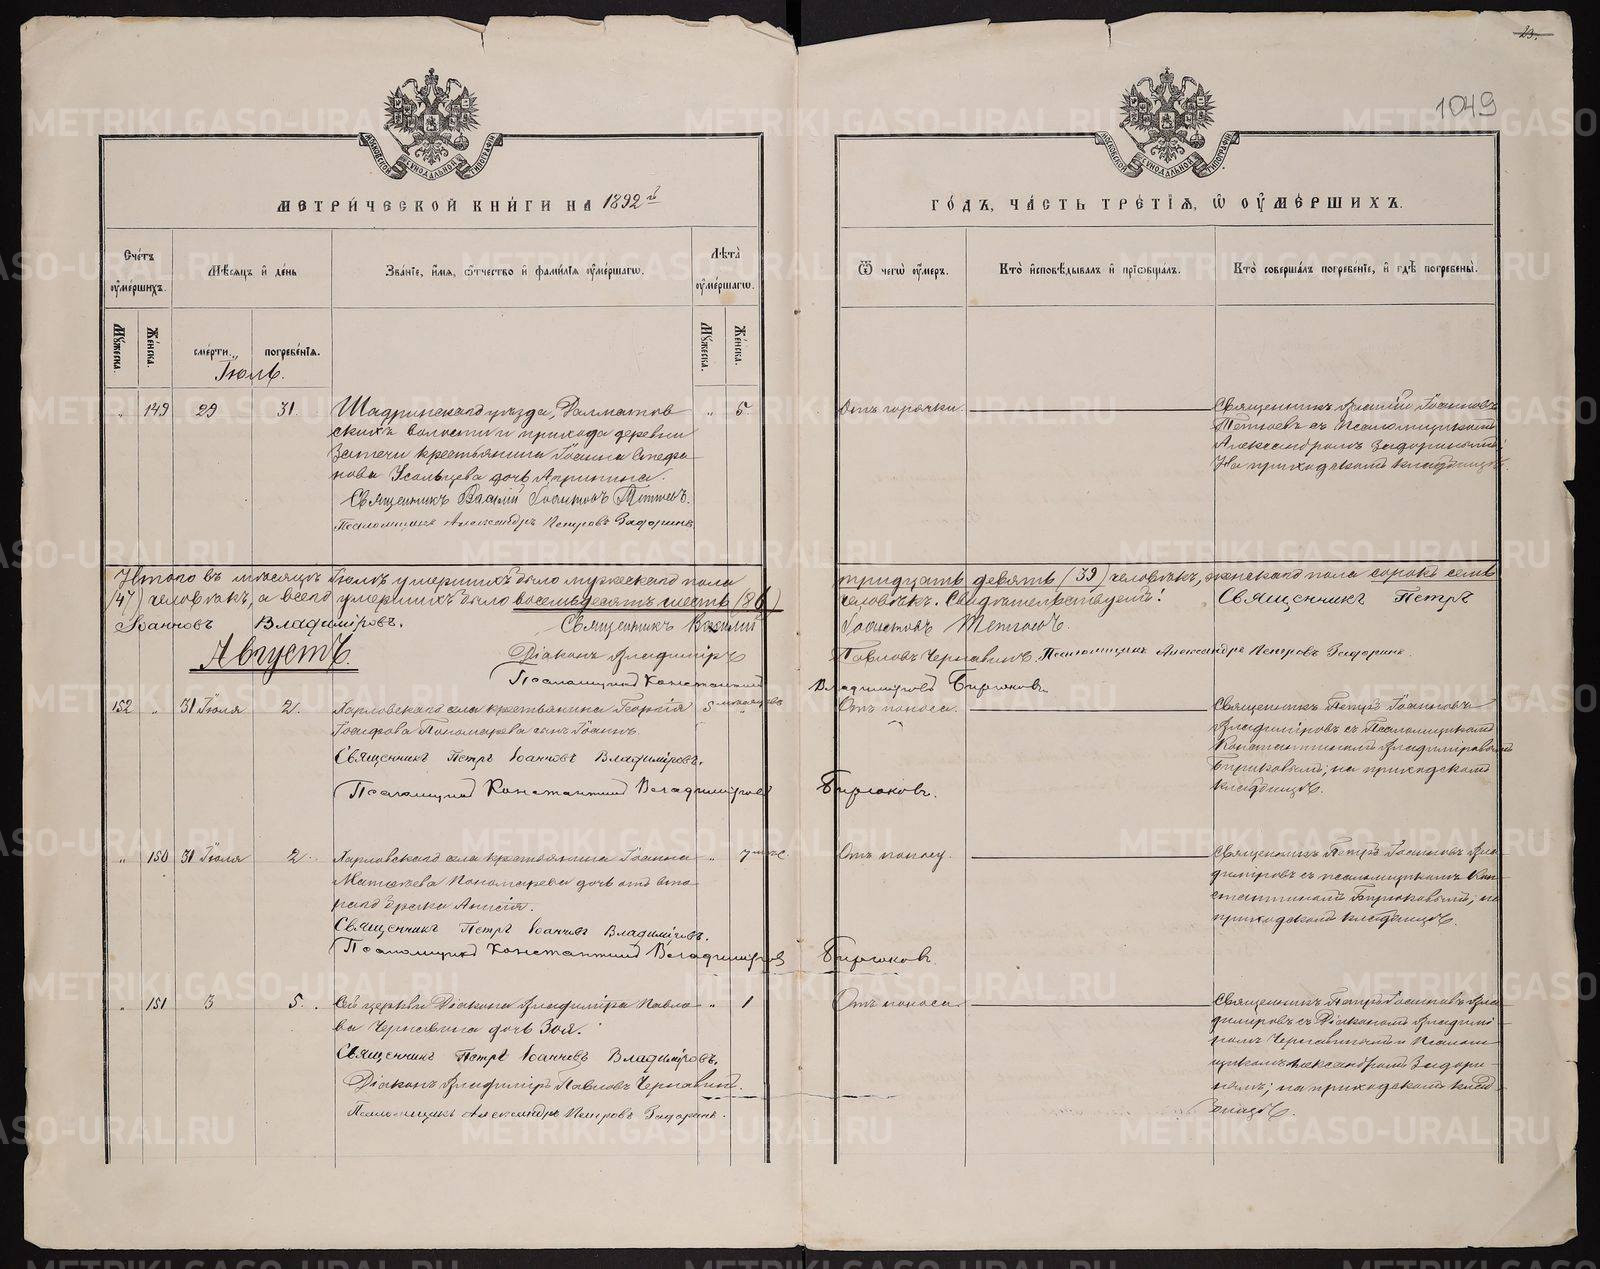 23.
1049
МОСКОВСКОЙ СѴНОДАЛЬНОЙ ТИПОГРАФІИ
МОСКОВСКОЙ СѴНОДАЛЬНОЙ ТИПОГРАФІИ
МЕТРИ́ЧЕСКОЙ КНИ́ГИ НА 1892 й
ГО́ДЪ, ЧА́СТЬ ТРЕ́ТІѦ, Ѿ ОУ҆МЕ́РШИХЪ.
Сче́тъ оу҆ме́ршихъ.
Мѣ́сѧцъ и҆ де́нь
Зва́нїе, и҆́мѧ, ѻ҆́тчество и҆ фами́лїѧ оу҆ме́ршагѡ.
Лѣ́та оу҆ме́ршагѡ.
Ѿ чегѡ̀ оу҆́меръ.
Кто̀ и҆сповѣ́дывалъ и҆ прїѡбща́лъ.
Кто̀ соверша́лъ погребе́нїе, и҆ гдѣ̀ погребены̀.
Мꙋ́жеска.
Же́нска.
сме́рти.
погребе́нїѧ.
Мꙋ́жеска.
Же́нска.
Іюль.
„ 149 29 31. Шадринскаго уѣзда, Далматов
„ 5.
скихъ волости и прихода деревни
Затечи крестьянина Іоанна Стефа
нова Усольцева дочь Агрипина.
Священникъ Василій Іоанновъ
Псаломщикъ Александръ Петровъ Задоринъ
Отъ горячки.
Священникъ Василій Іоанновъ
съ Псаломщикомъ
Александромъ Задоринымъ;
На приходскомъ кладбищѣ.
Итого въ мѣсяцѣ Іюлѣ умершихъ было мужескаго пола
тридцать девять (39) человѣкъ, женскаго пола сорокъ семь
(47) человѣкъ, а всего умершихъ было восемьдесятъ шесть (86)
человѣкъ. Свидѣтельствуемъ: Священникъ Петръ
Іоанновъ Владиміровъ. Священникъ Василій
Іоанновъ
Августъ.
Діаконъ Владиміръ
Павловъ Чернавинъ. Псаломщикъ Александръ Петровъ Задоринъ.
Псаломщикъ Константинъ
Владиміровъ Бирюковъ.
152 „ 31 Іюля 2. Харловскаго села крестьянина Георгія
5 мѣсяцевъ „
Іосифова Пономарева сынъ Іоаннъ.
Священникъ Петръ Іоанновъ Владиміровъ.
Псаломщикъ Константинъ Владиміровъ
Бирюковъ.
Отъ поноса.
Священникъ Петръ Іоанновъ
Владиміровъ съ Псаломщикомъ
Константиномъ Владиміровымъ
Бирюковымъ; на приходскомъ
кладбищѣ.
„ 150 31 Іюля 2. Харловскаго села крестьянина Іоанна
„ 7 мѣс.
Матѳѣева Пономарева дочь отъ вто
раго брака Анисія.
Священникъ Петръ Іоанновъ Владиміровъ.
Псаломщикъ Константинъ Владиміровъ
Бирюковъ.
Отъ поносу.
Священникъ Петръ Іоанновъ Вла
диміровъ съ псаломщикомъ Кон
стантиномъ Бирюковымъ; на
приходскомъ кладбищѣ.
„ 151 3 5. Сей церкви Діакона Владиміра Павло
„ 1
ва Чернавина дочь Зоя.
Священникъ Петръ Іоанновъ Владиміровъ.
Діаконъ Владиміръ Павловъ Чернавинъ.
Псаломщикъ Александръ Петровъ Задоринъ.
Отъ поноса
Священникъ Петръ Іоанновъ Вла
диміровъ съ Діакономъ Владимі
ромъ Чернавинымъ и Псалом
щикомъ Александромъ Задори
нымъ; на приходскомъ клад
бищѣ.
METRIKI.GASO-URAL.RU